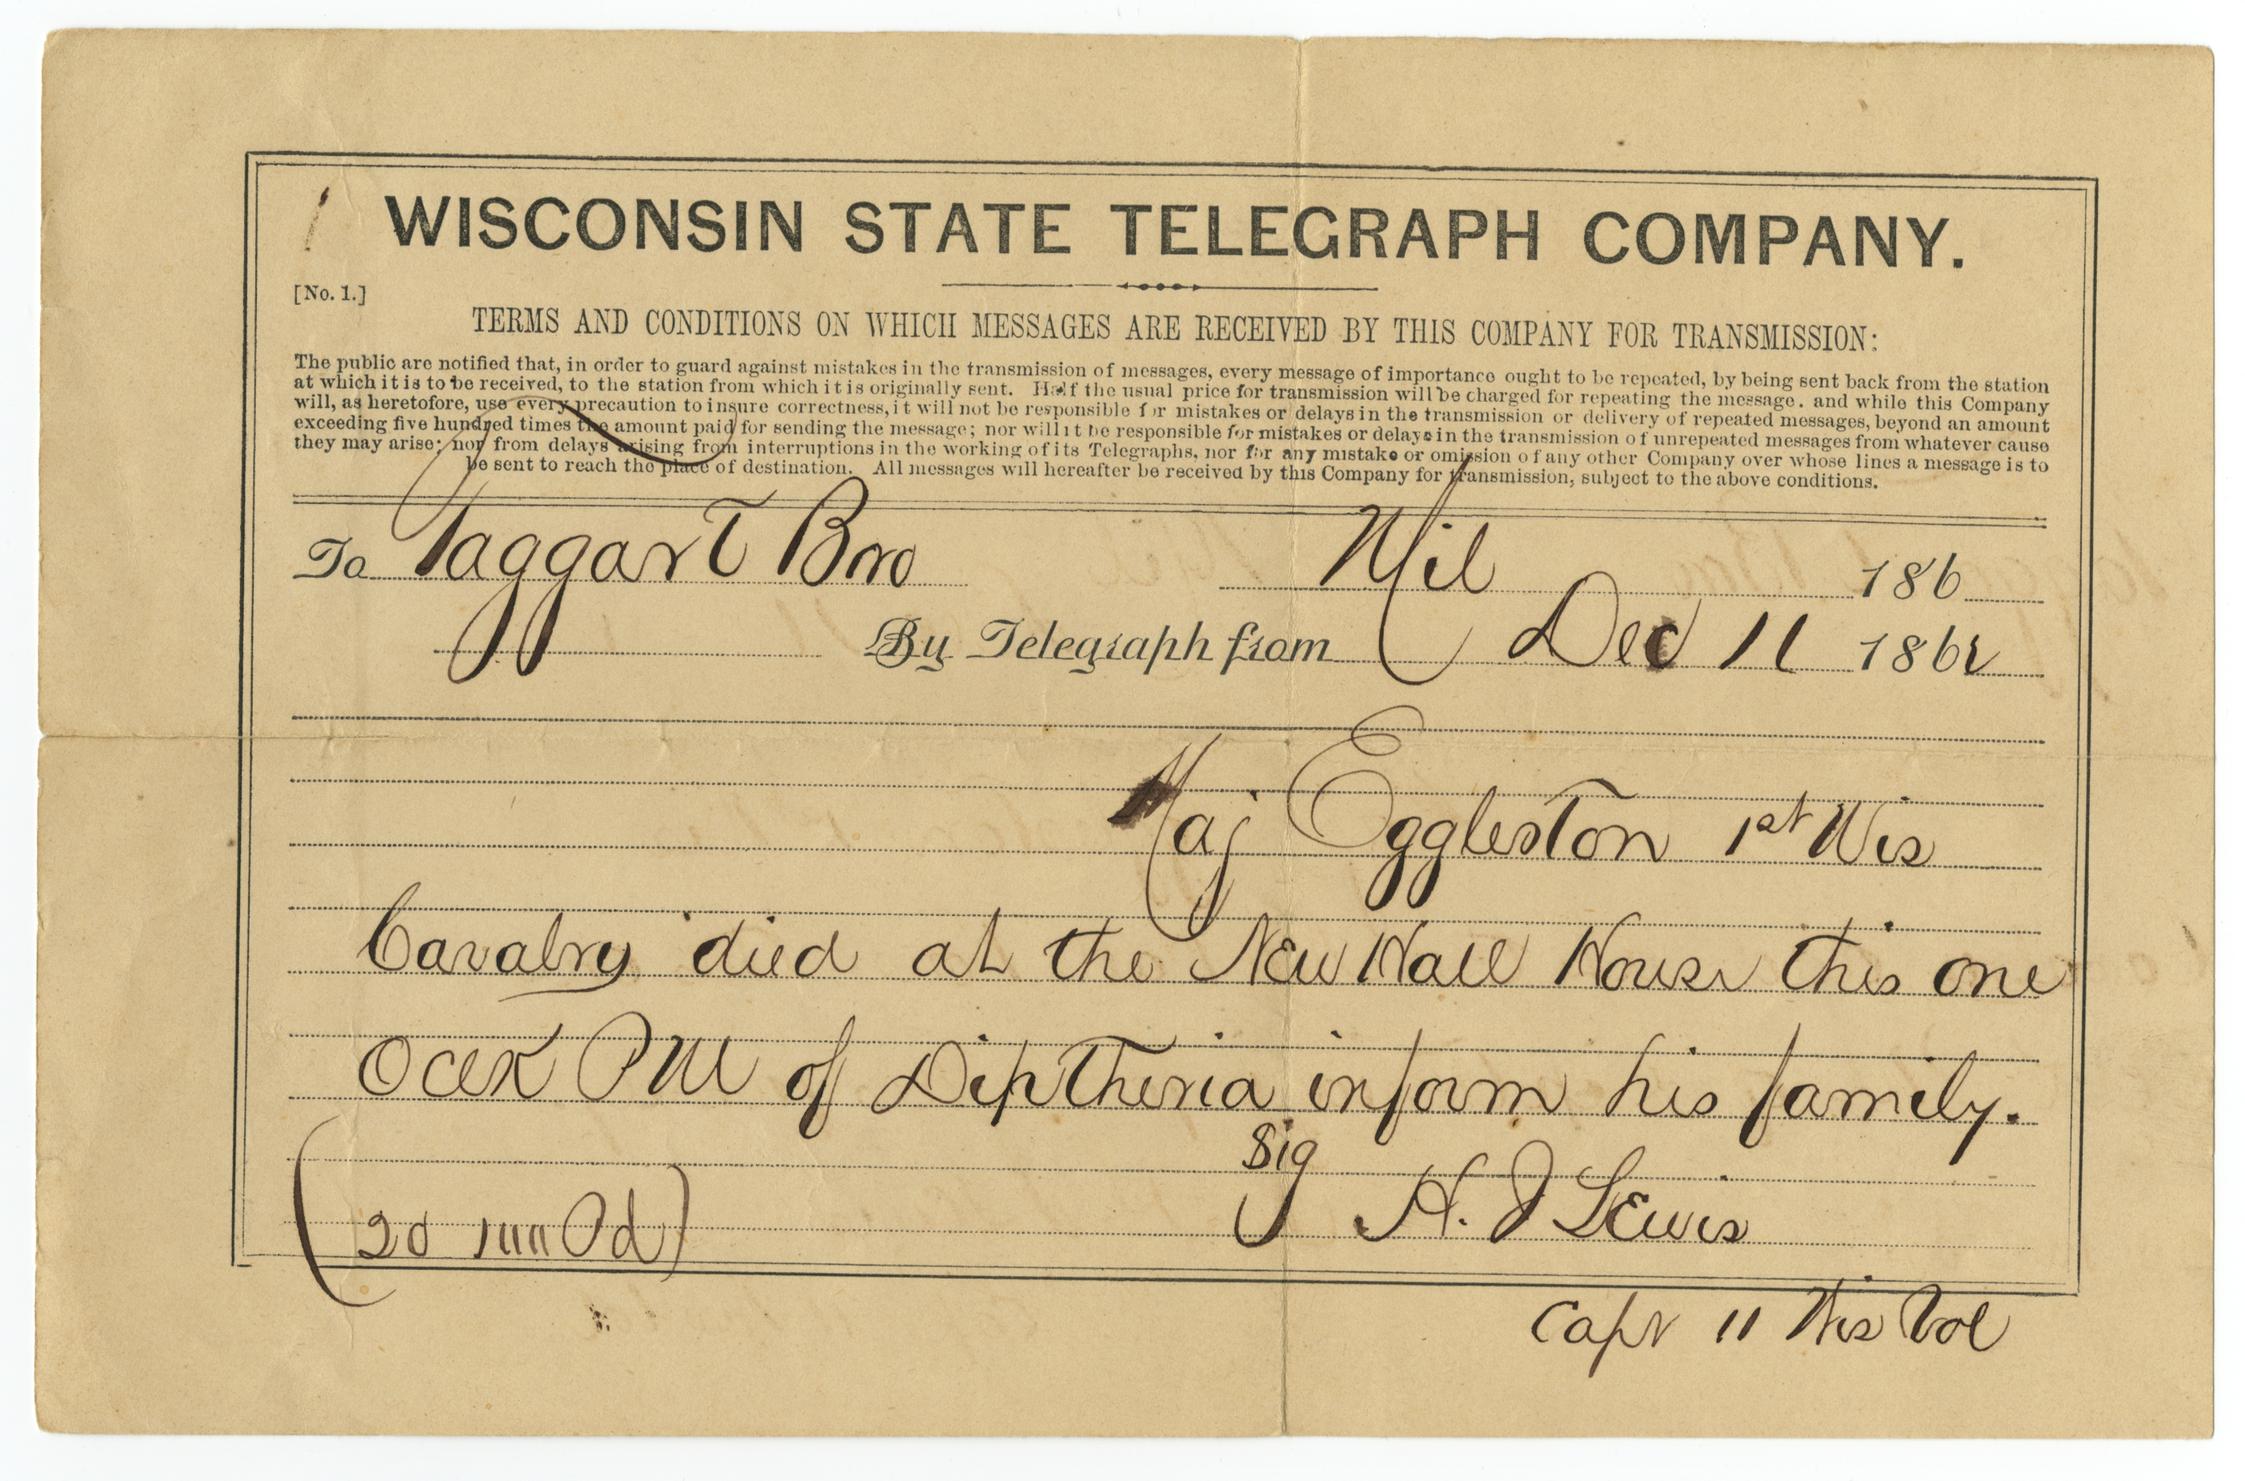 WISCONSIN STATE TELEGRAPH COMPANY.
[No. 1.]
TERMS AND CONDITIONS ON WHICH MESSAGES ARE RECEIVED BY THIS COMPANY FOR TRANSMISSION:
The public are notified that, in order to guard against mistakes in the transmission of messages, every message of importance ought to be repeated, by being sent back from the station
at which it is to be received, to the station from which it is originally sent. Half the usual price for transmission will be charged for repeating the message. and while this Company
will, as heretofore, use every precaution to insure correctness, it will not be responsible for mistakes or delays in the transmission or delivery of repeated messages, beyond an amount
exceeding five hundred times the amount paid for sending the message; nor will it be responsible for mistakes or delays in the transmission of unrepeated messages from whatever cause
they may arise; nor from delays arising from interruptions in the working of its Telegraphs, nor for any mistake or omission of any other Company over whose lines a message is to
be sent to reach the place of destination. All messages will hereafter be received by this Company for transmission, subject to the above conditions.
To Taggart Bro Mil 186
By Telegraph from Dec 11 1862
Maj Eggleston 1st Wis
Cavalry died at the New Hall House this one
Ock PM of Diptheria inform his family.
Sig H. J Lewis
(20 Pd)
Capt 11 Wis Vol